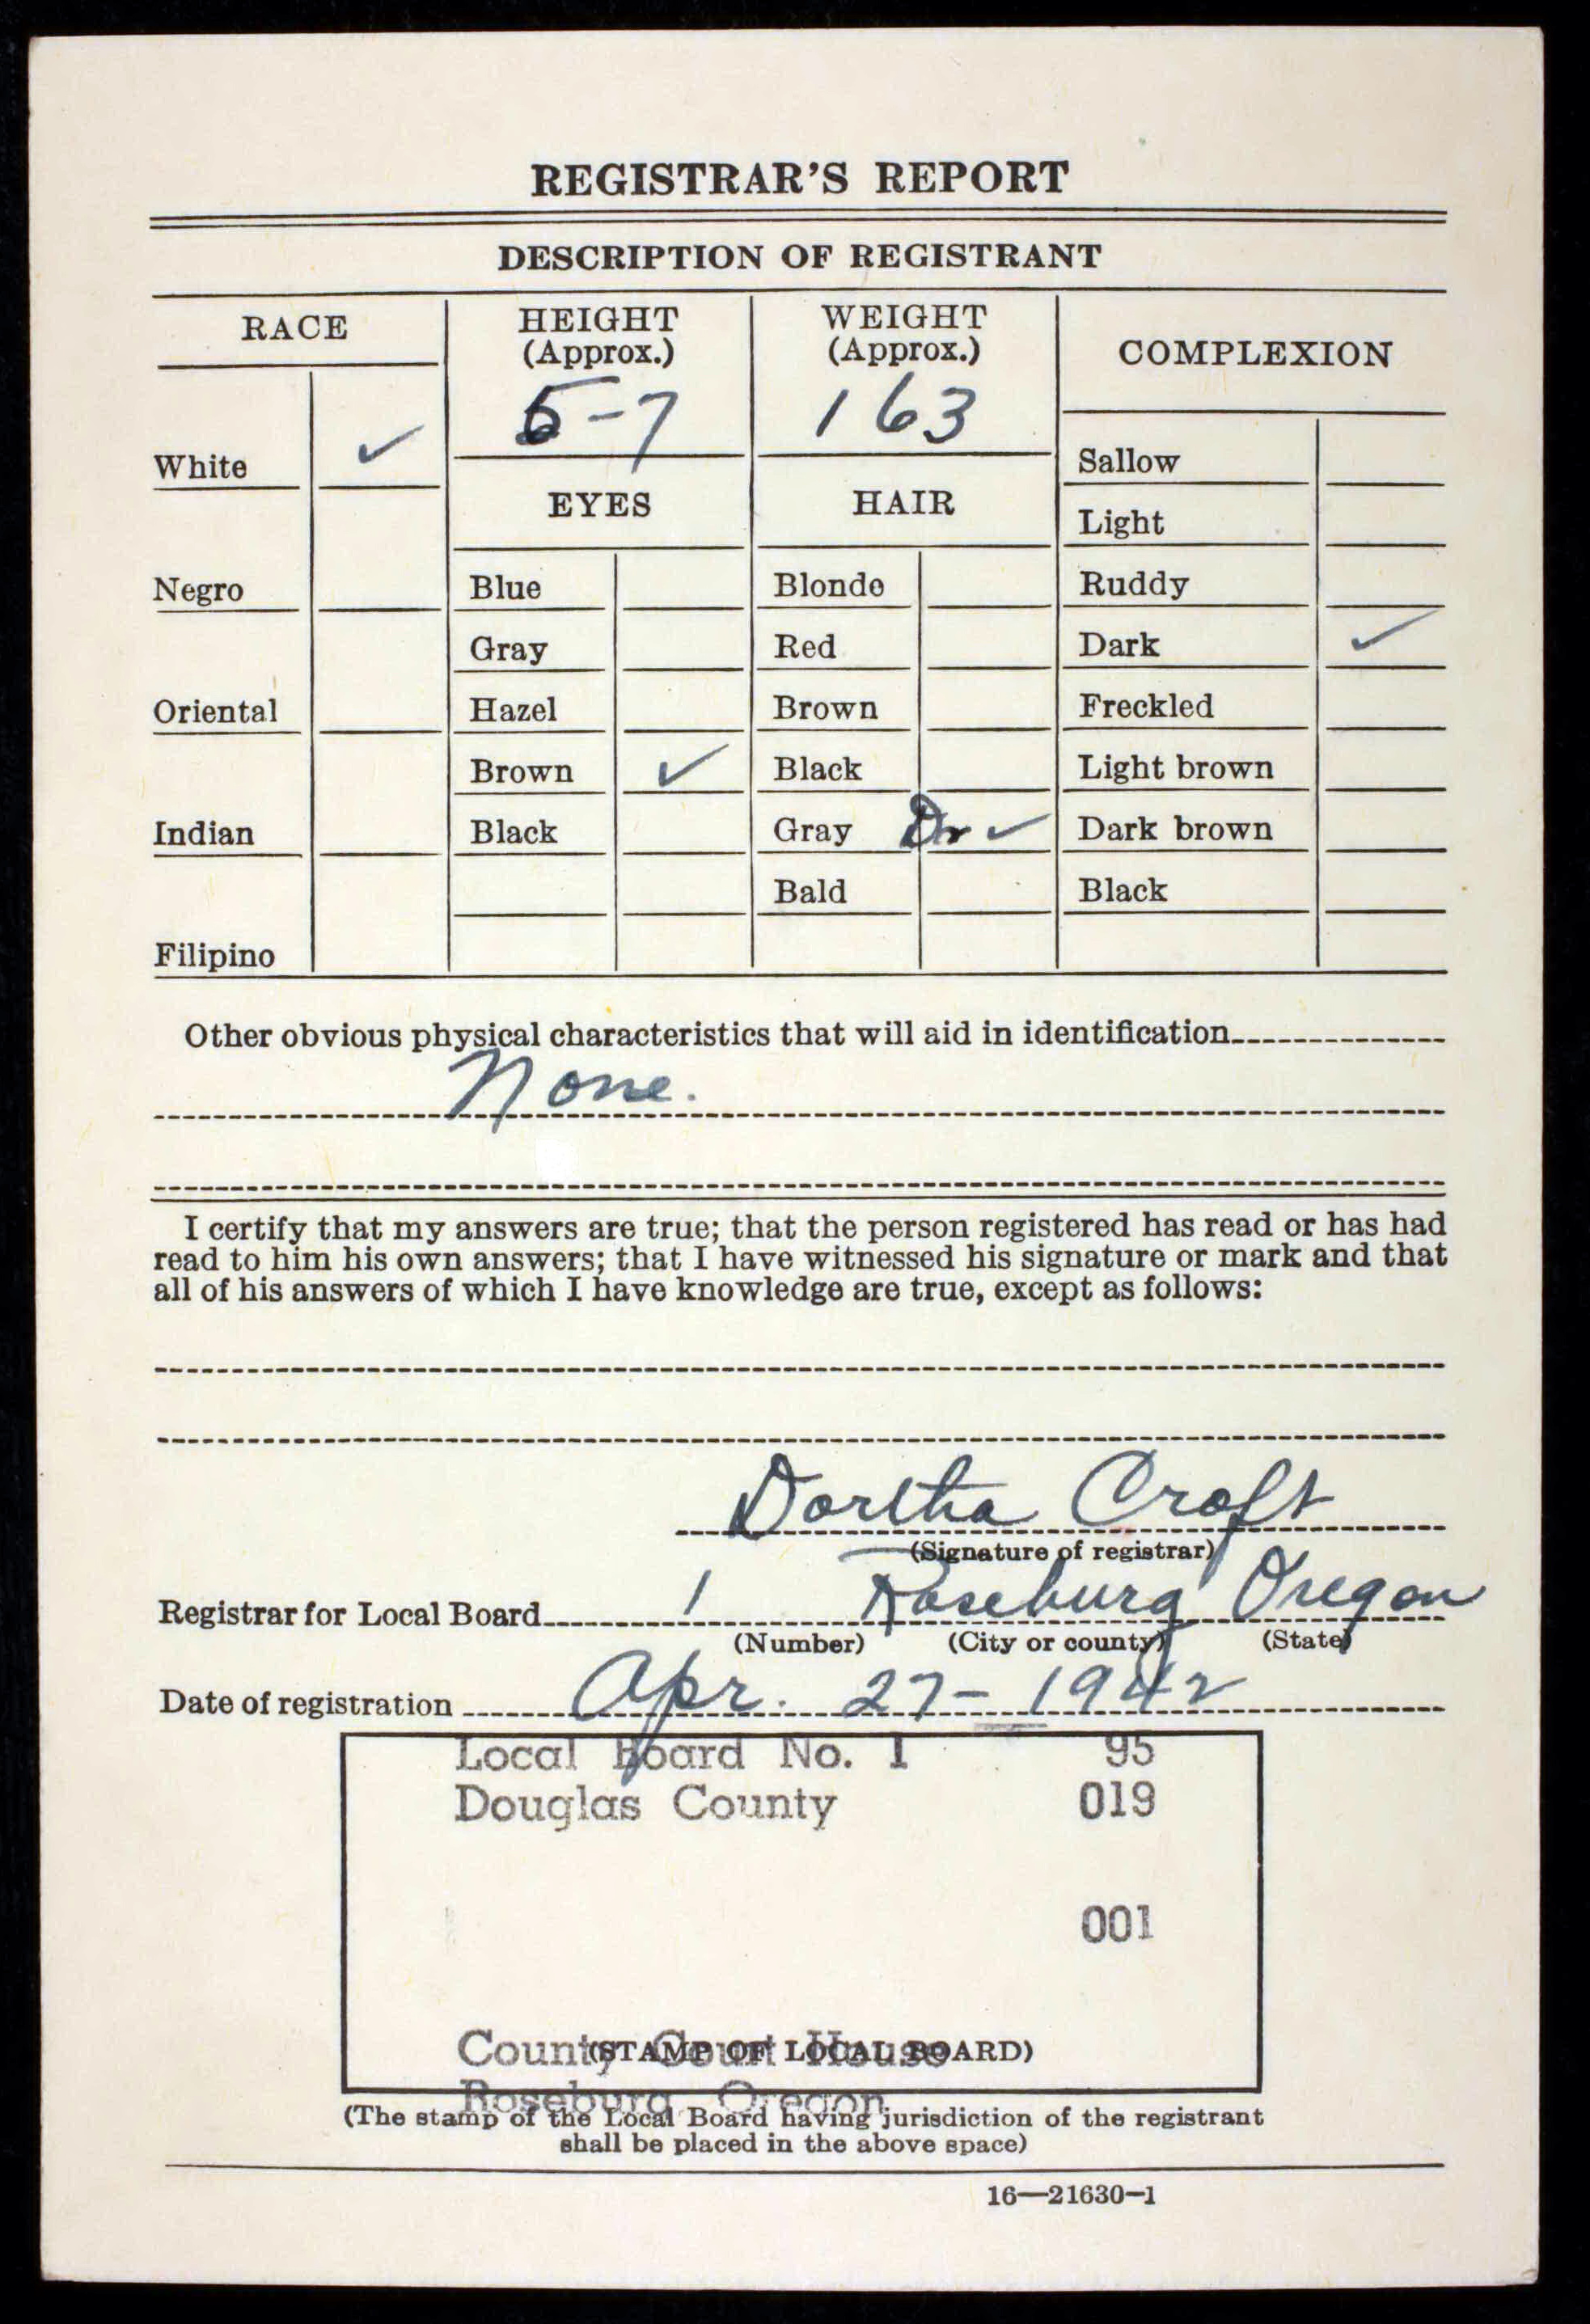 REGISTRAR'S REPORT
DESCRIPTION OF REGISTRANT
RACE
HEIGHT
(Approx.)
WEIGHT
(Approx.)
COMPLEXION
5-7
163
White ✓
EYES
HAIR
Sallow
Light
Negro
Blue
Blonde
Ruddy
Gray
Red
Dark ✓
Oriental
Hazel
Brown
Freckled
Brown ✓
Black
Light brown
Indian
Black
Gray ✓
Dark brown
Bald
Black
Filipino
Other obvious physical characteristics that will aid in identification
None.
I certify that my answers are true; that the person registered has read or has had
read to him his own answers; that I have witnessed his signature or mark and that
all of his answers of which I have knowledge are true, except as follows:
Dortha Croft
(Signature of registrar)
Registrar for Local Board 1 Roseburg Oregon
(Number) (City or county) (State)
Date of registration Apr. 27-1942
Local Board No. 1 95
Douglas County 019
001
County Court House
(STAMP OF LOCAL BOARD)
Roseburg, Oregon
(The stamp of the Local Board having jurisdiction of the registrant
shall be placed in the above space)
16—21630-1